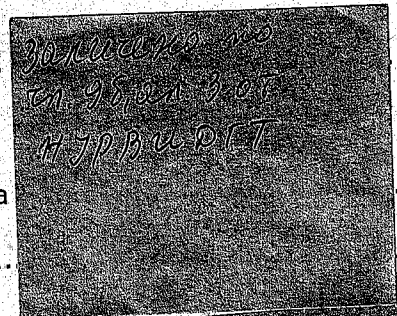 Заличено по
чл. 9б, ал 3 от
НУРВИДГТ
а
..